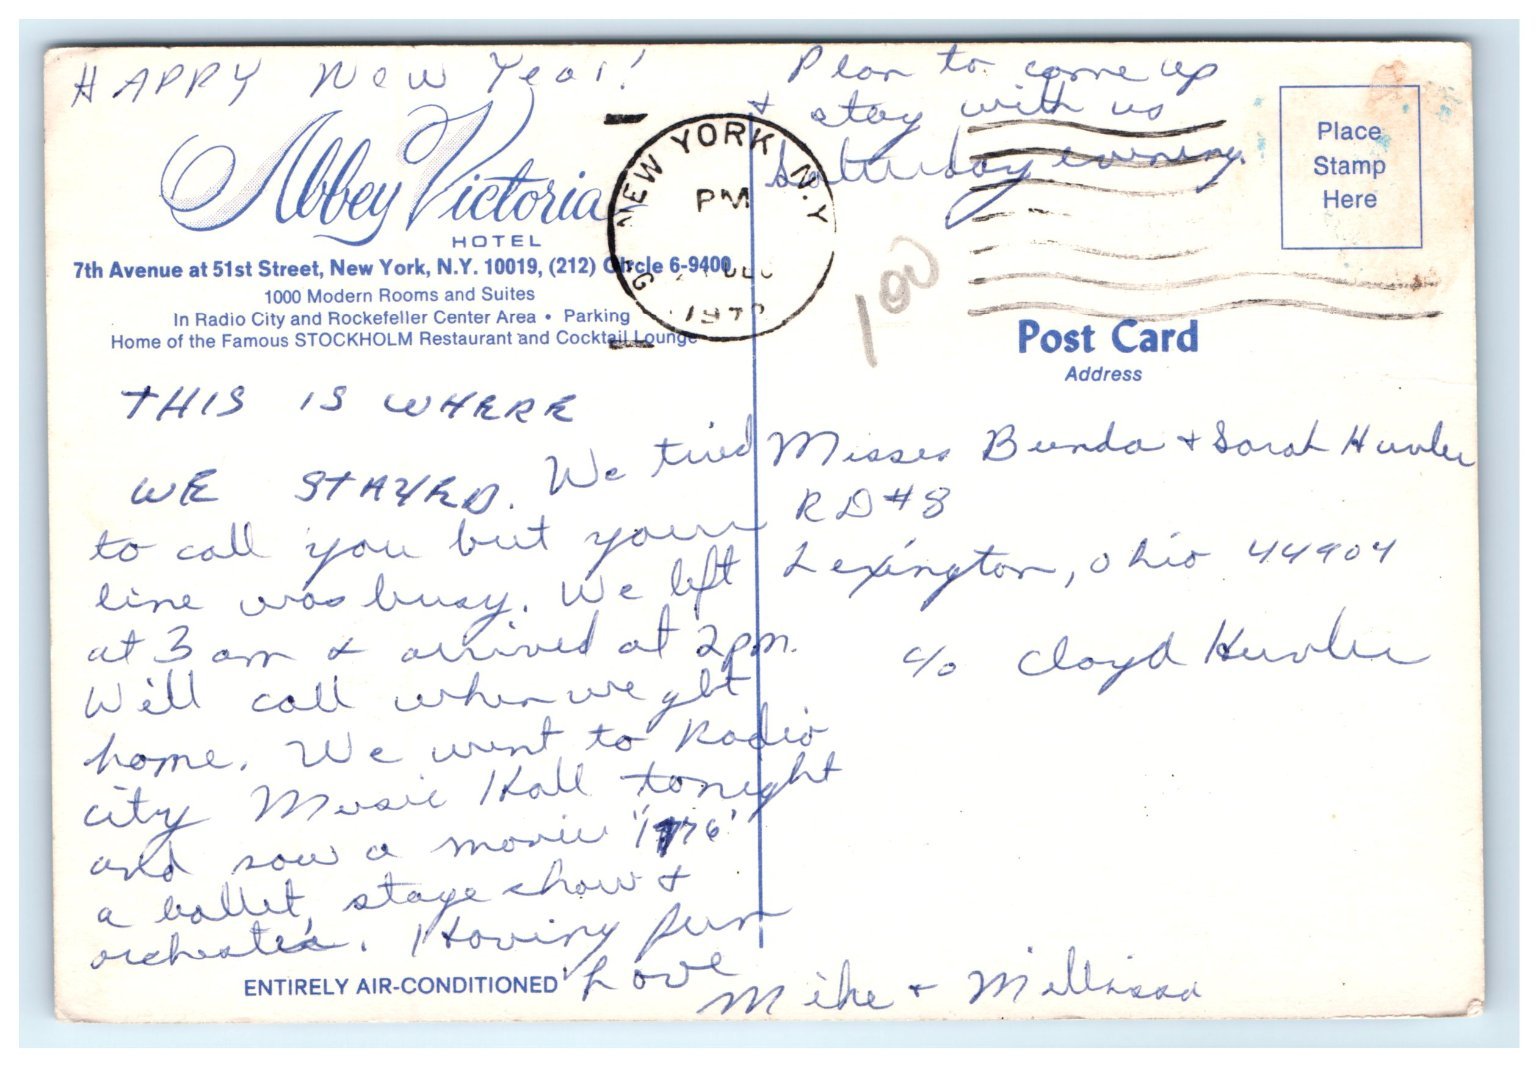 HAPPY New Year!
Plan to come up
+ stay with us
Saturday evening.
Abbey Victoria
HOTEL
7th Avenue at 51st Street, New York, N.Y. 10019, (212) Circle 6-9400
1000 Modern Rooms and Suites
In Radio City and Rockefeller Center Area • Parking
Home of the Famous STOCKHOLM Restaurant and Cocktail Lounge
NEW YORK, N.Y
PM
DEC
197
100
Place
Stamp
Here
Post Card
Address
THIS IS WHERE
WE STAYED. We tried
to call you but your
line was busy. We left
at 3 am & arrived at 2pm.
We'll call when we get
home. We went to Radio
city Music Hall tonight
and saw a movie '1776'
a ballet, stage show &
orchestra. Having fun
Love
Mike + Millissa
ENTIRELY AIR-CONDITIONED
Misses + Sarah
RD#8
Lexington, Ohio 44904
c/o Cloyd